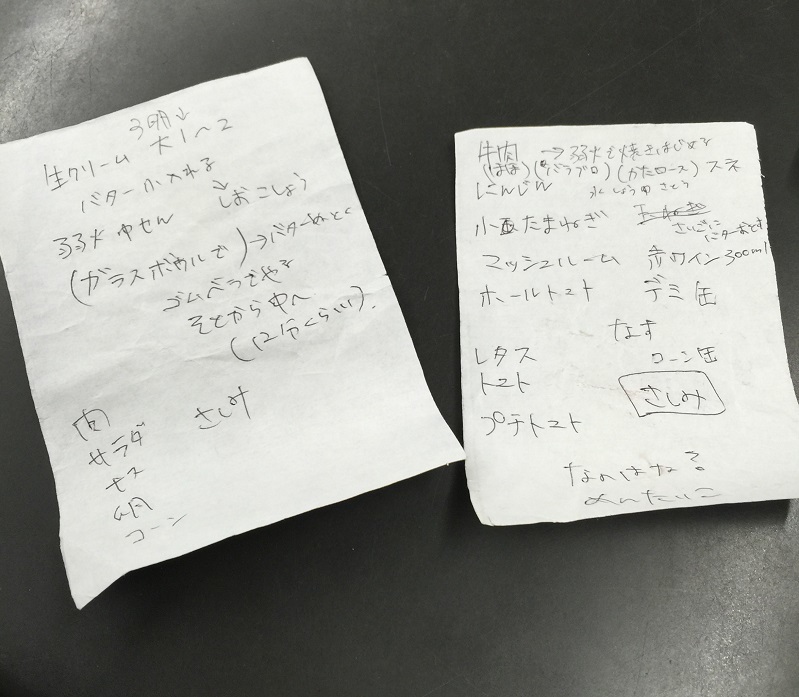 3明↓
生クリーム 大1〜2
バター小入れる
↘しおこしょう
弱火 中せん
(ガラスボウルで)→バターぬっとく
ゴムベラでやる
そとから中へ
(12分くらい).
肉 さしみ
サラダ
ナス
明
コーン
牛肉 →弱火で焼きはじめる
(ほほ)(バラブロ)(かたロース) スネ
にんじん 水 しょうゆ さとう
小玉たまねぎ
さいごに
バターおとす
マッシュルーム 赤ワイン300ml
ホールトマト デミ缶
なす
レタス コーン缶
トマト さしみ
プチトマト
なのはな?
めんたいこ